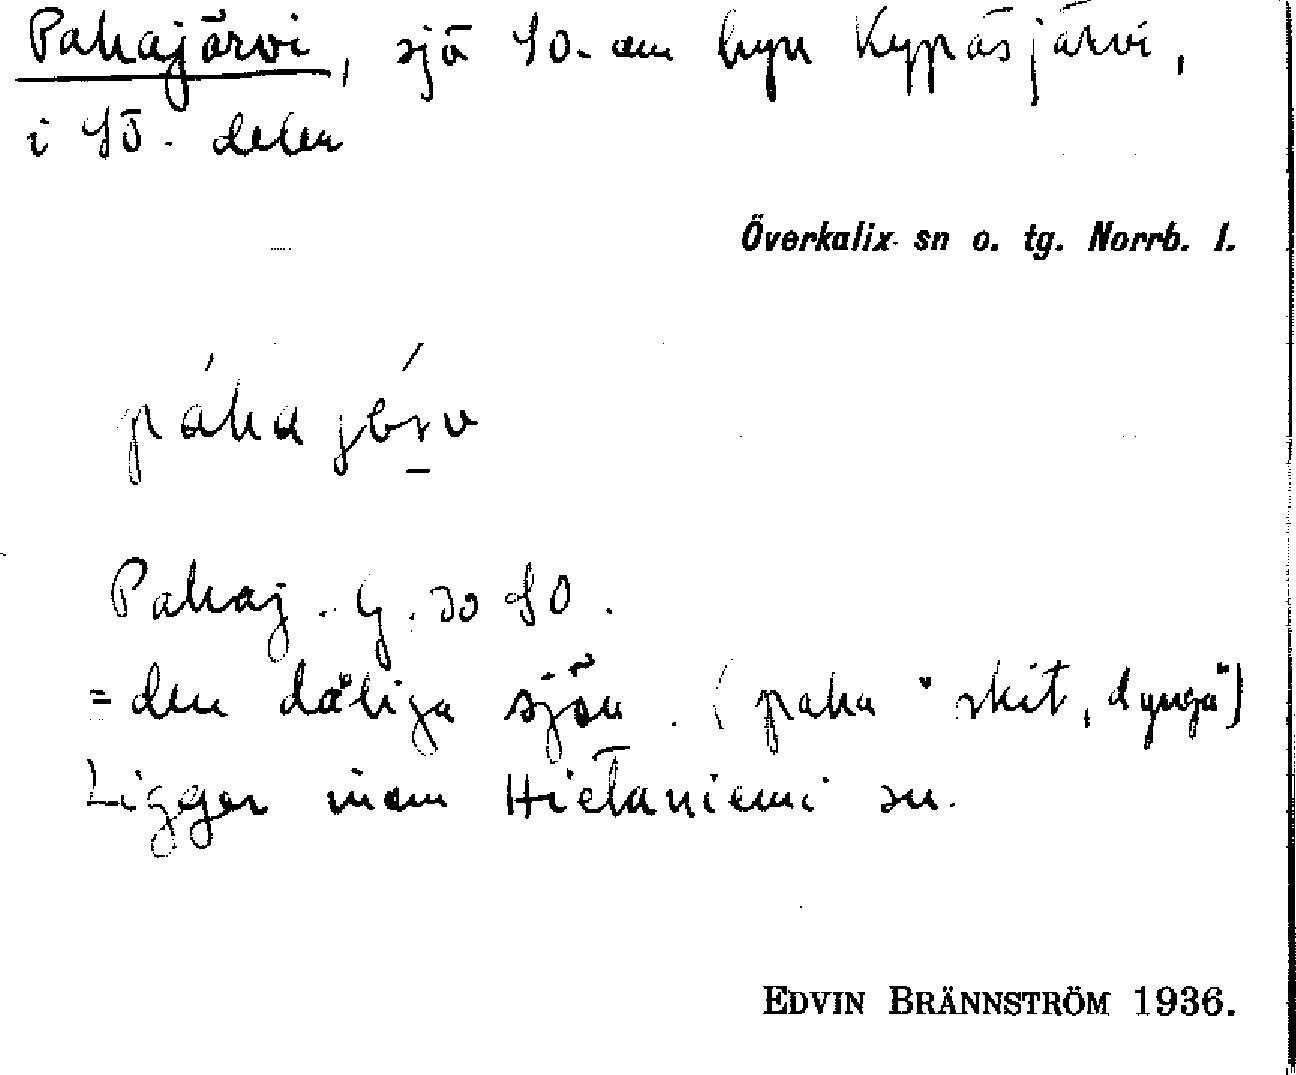 Pahajärvi, sjö SO. om byn Kypäsjärvi,
i SÖ. delen
Överkalix sn o. tg. Norrb. l.
páhajérv
Pahaj. G. 30 SO.
= den dåliga sjön. (paha "skit, dynga")
Ligger inom Hietaniemi sn.
EDVIN BRÄNNSTRÖM 1936.